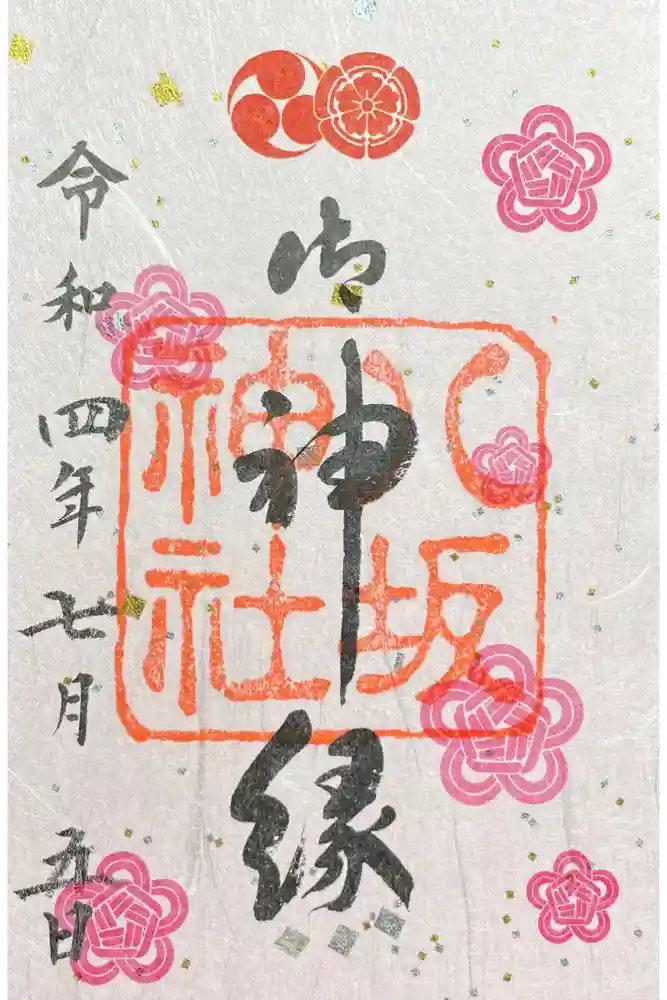 御神縁
八坂
神社
令和四年七月五日